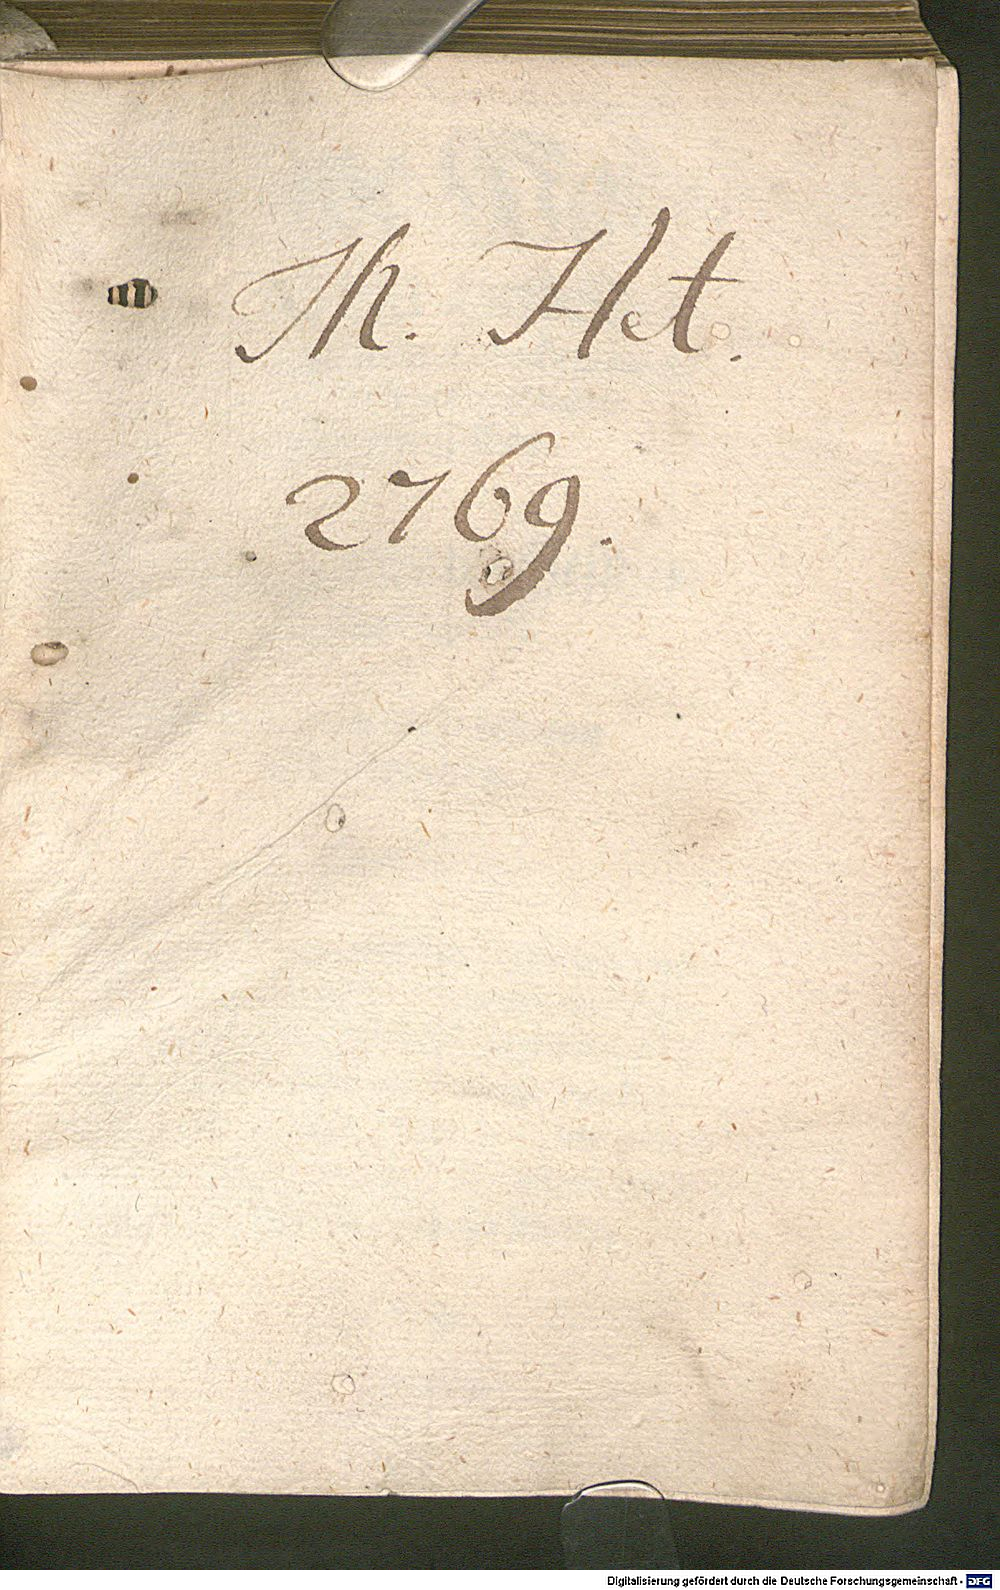 Th. Het.
2769.
Digitalisierung gefördert durch die Deutsche Forschungsgemeinschaft - DFG